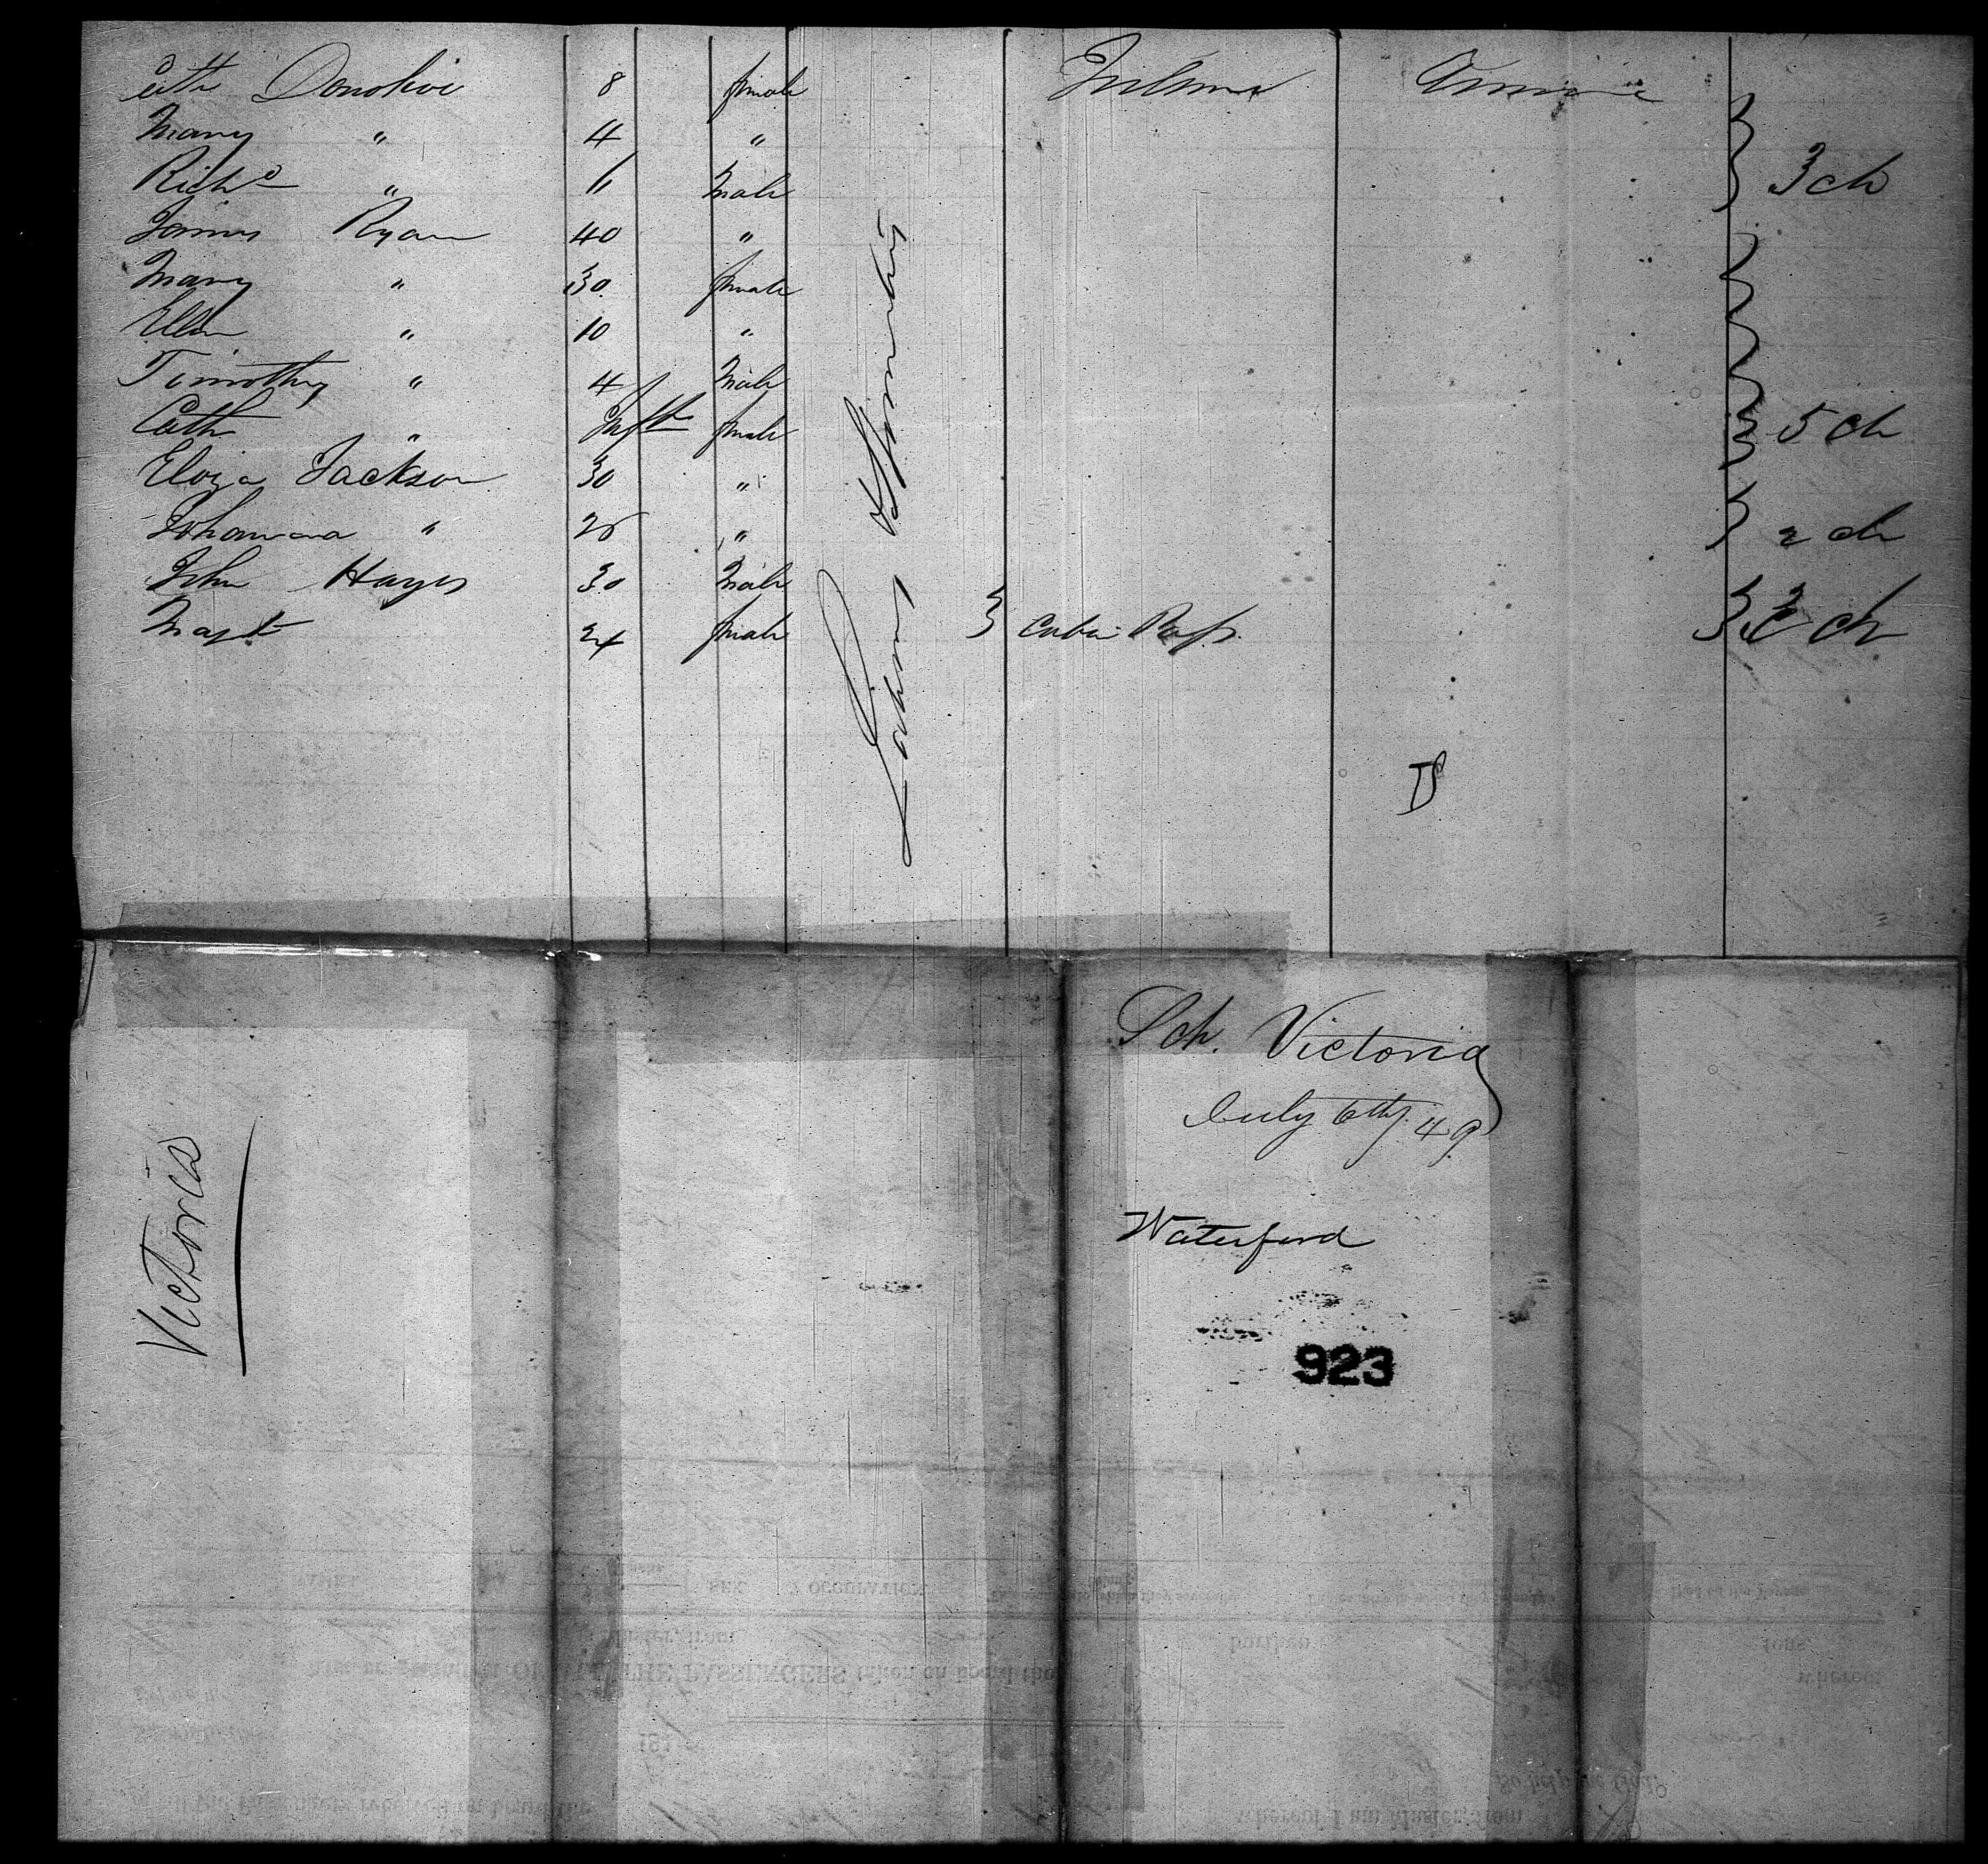 Cath Donohoe 8 female Ireland America
Mary " 4 "
Richd " 11 Male 3 ch
James Ryan 40 "
Mary " 30 female
Ellen " 10 "
Timothy " 4 Male
Cath " Inft female 5 ch
Eliza Jackson 30 "
Johanna " 25 " 2 ch
John Hayes 30 Male
Magt 24 female Cabin Pass. 2 ch
Sch. Victoria
July 6th/49
Waterford
923
Victoria